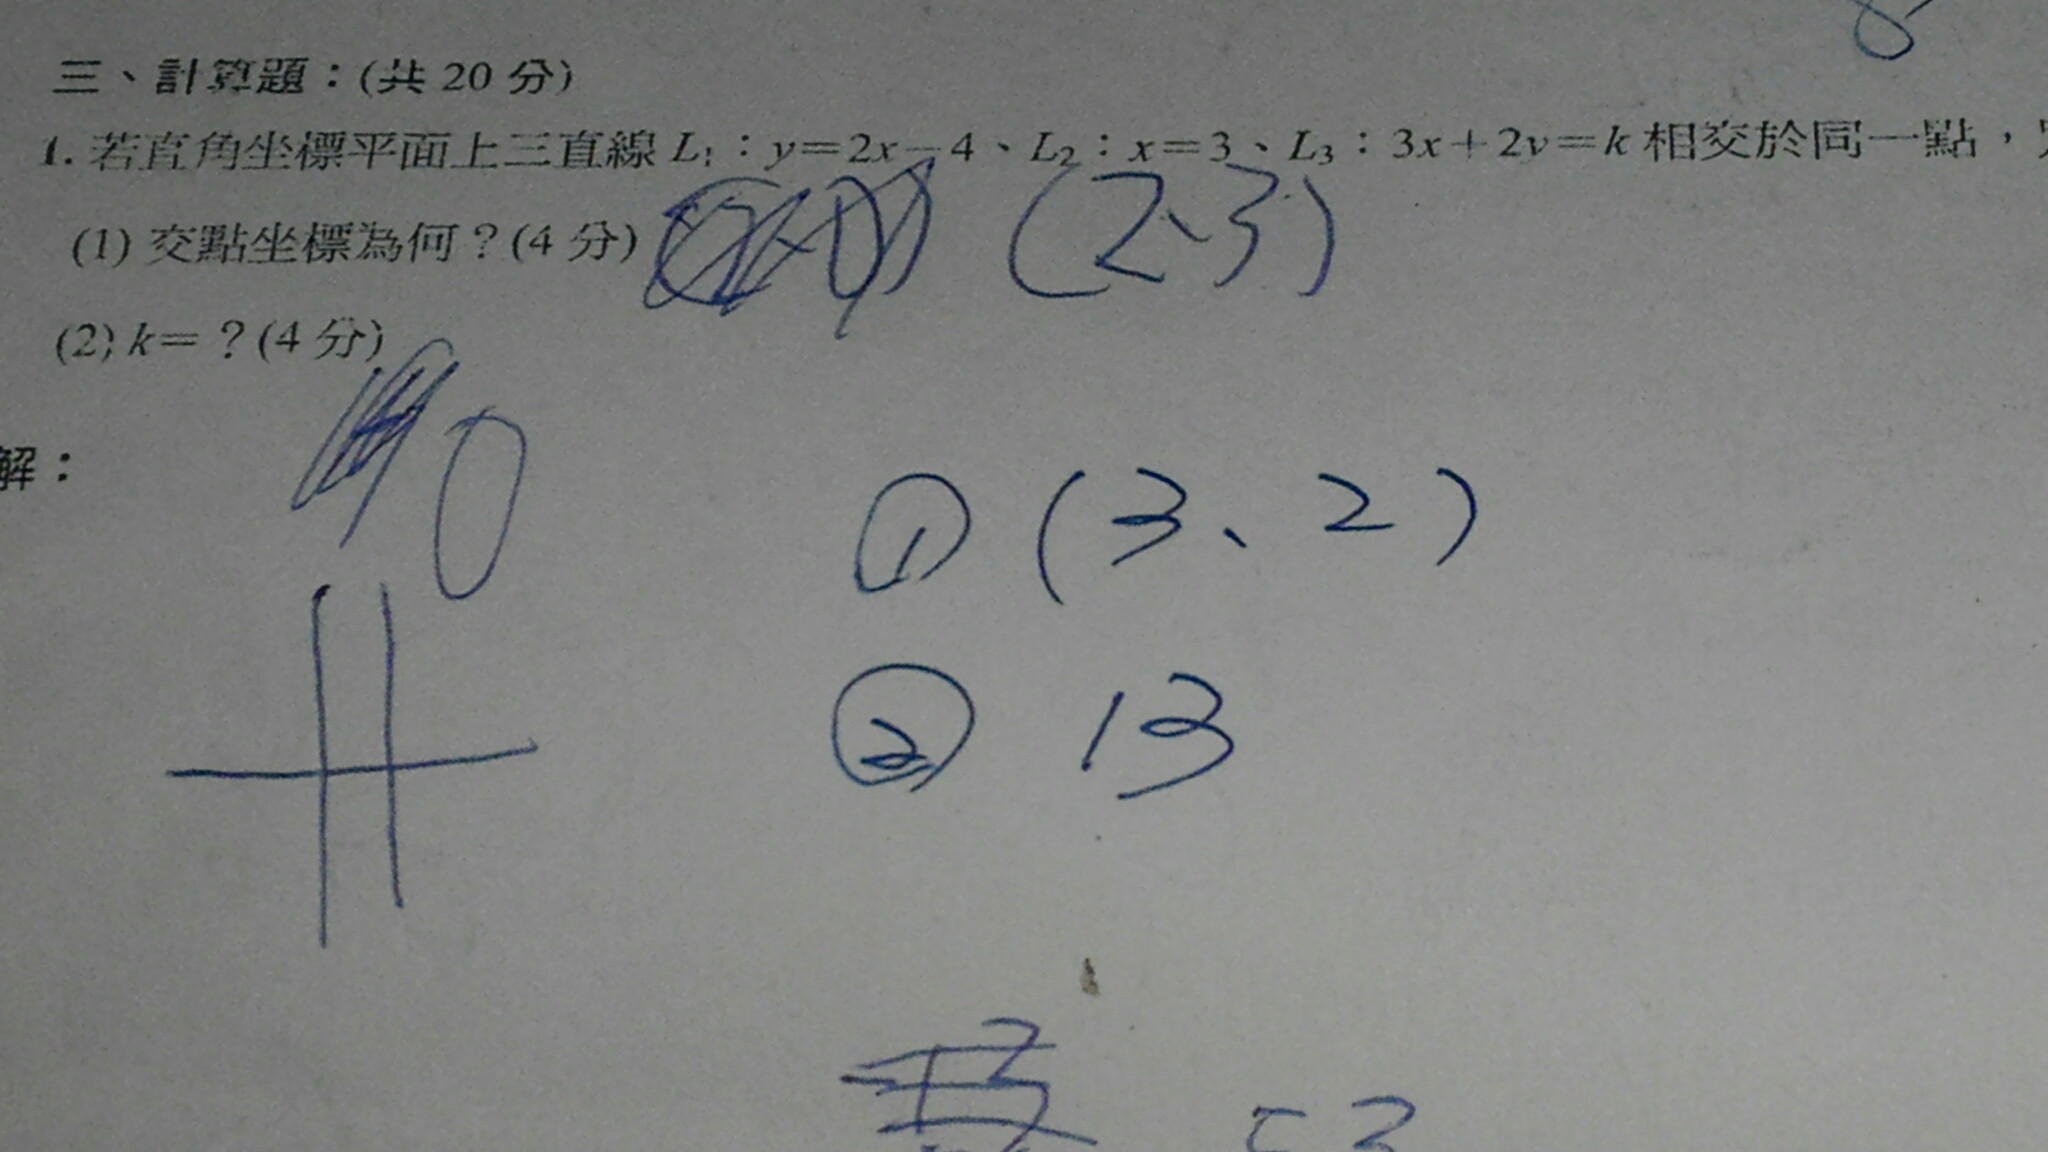 三、計算題：(共 20 分)
1. 若直角坐標平面上三直線 L₁：y=2x-4、L₂：x=3、L₃：3x+2y=k 相交於同一點，
(1) 交點坐標為何？(4 分) (2、3)
(2) k=？(4 分)
0
解：
① (3、2)
② 13
=3